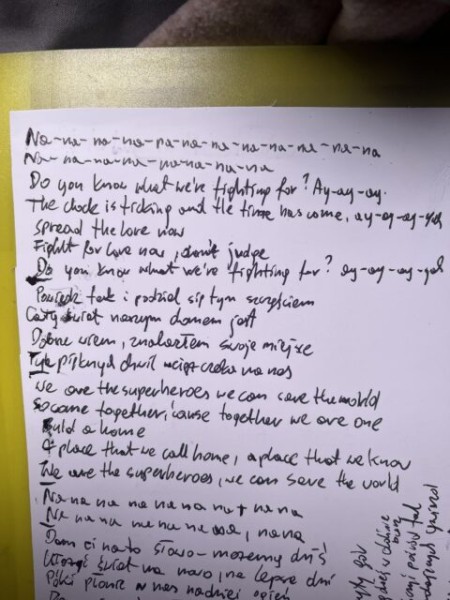 Na-na-na-na-na-na-na-na-na-na-na-na
Na-na-na-na-na-na-na-na
Do you know what we're fighting for? Ay-ay-ay.
The clock is ticking and the time has come, ay-ay-ay-yah
spread the love now
Fight for love now, don't judge
Do you know what we're fighting for? ay-ay-ay-yah
Powiedz tak i podziel się tym szczęściem
Cały świat naszym domem jest
Dobrze wiem, znalazłem swoje miejsce
Tyle pięknych chwil wciąż czeka na nas
We are the superheroes we can save the world
So come together, 'cause together we are one
Build a home
A place that we call home, a place that we know
We are the superheroes, we can save the world
Na na na na na na na na na
Na na na na na na na, na na
Dam ci na to słowo - możemy dziś
Utworzyć świat na nowo, na lepsze dni
Póki płonie w nas nadziei ogień